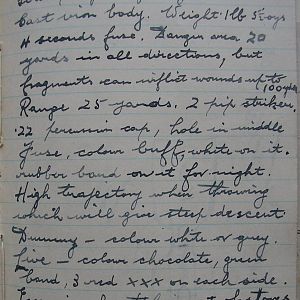 Cast iron body. Weight 1 lb 5½ ozs
4 seconds fuse. Danger area 20
yards in all directions, but
fragments can inflict wounds up to 100 yds
Range 25 yards. 2 pip striker.
.22 percussion cap, hole in middle
Fuse, colour buff, white on it.
rubber band on it for night.
High trajectory when throwing
which will give steep descent
Dummy – colour white or grey.
Live – colour chocolate, green
band, 3 red xxx on each side.